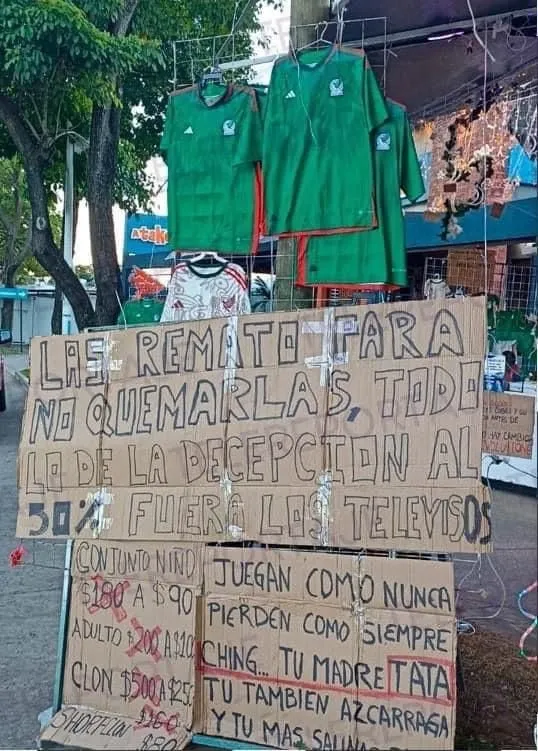 Atak
LAS REMATO PARA
NO QUEMARLAS, TODO
LO DE LA DECEPCION AL
50% FUERA LOS TELEVISOS
CONJUNTO NIÑO
$180 A $90
ADULTO $200 A $100
CLON $500 A $250
SHORT
$160
$80
JUEGAN COMO NUNCA
PIERDEN COMO SIEMPRE
CHING... TU MADRE TATA
TU TAMBIEN AZCARRAGA
Y TU MAS SALINA
ANTES DE
HAY CAMBIO